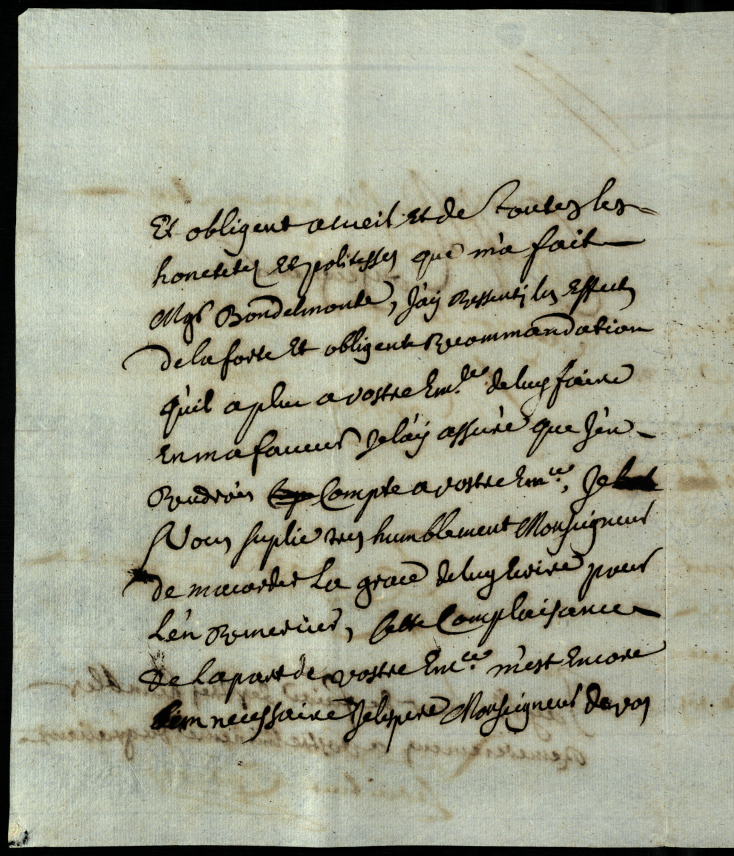 Et obligent acueil et de toutes les
honetetes et politesses que m'a fait
Mgr Bondelmonte, J'ay Ressenty les Effects
de la forte Et obligente Recommandation
qu'il a plu a vostre Em.ce de luy faire
En ma faveur Je l'ay assuré que J'en
Rendrois Compte a vostre Em.ce, Je
Vous suplie tres humblement Monseigneur
de m'acorder La grace de luy Ecrire pour
L'en Remercier, Cette Complaisance
De la part de vostre Em.ce m'est Encore
nécessaire J'espere Monseigneur de vos